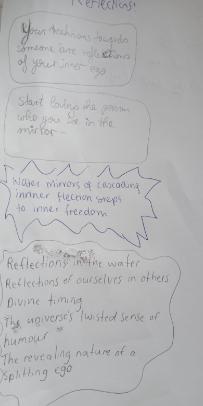 Reflections!
Your reactions towards
someone are reflections
of your inner ego
Start loving the person
who you see in the
mirror -
Water mirrors of cascading
innner flection steps
to inner freedom
Reflections in the water
Reflections of ourselves in others
Divine timing
The universe's twisted sense of
humour
The revealing nature of a
splitting ego